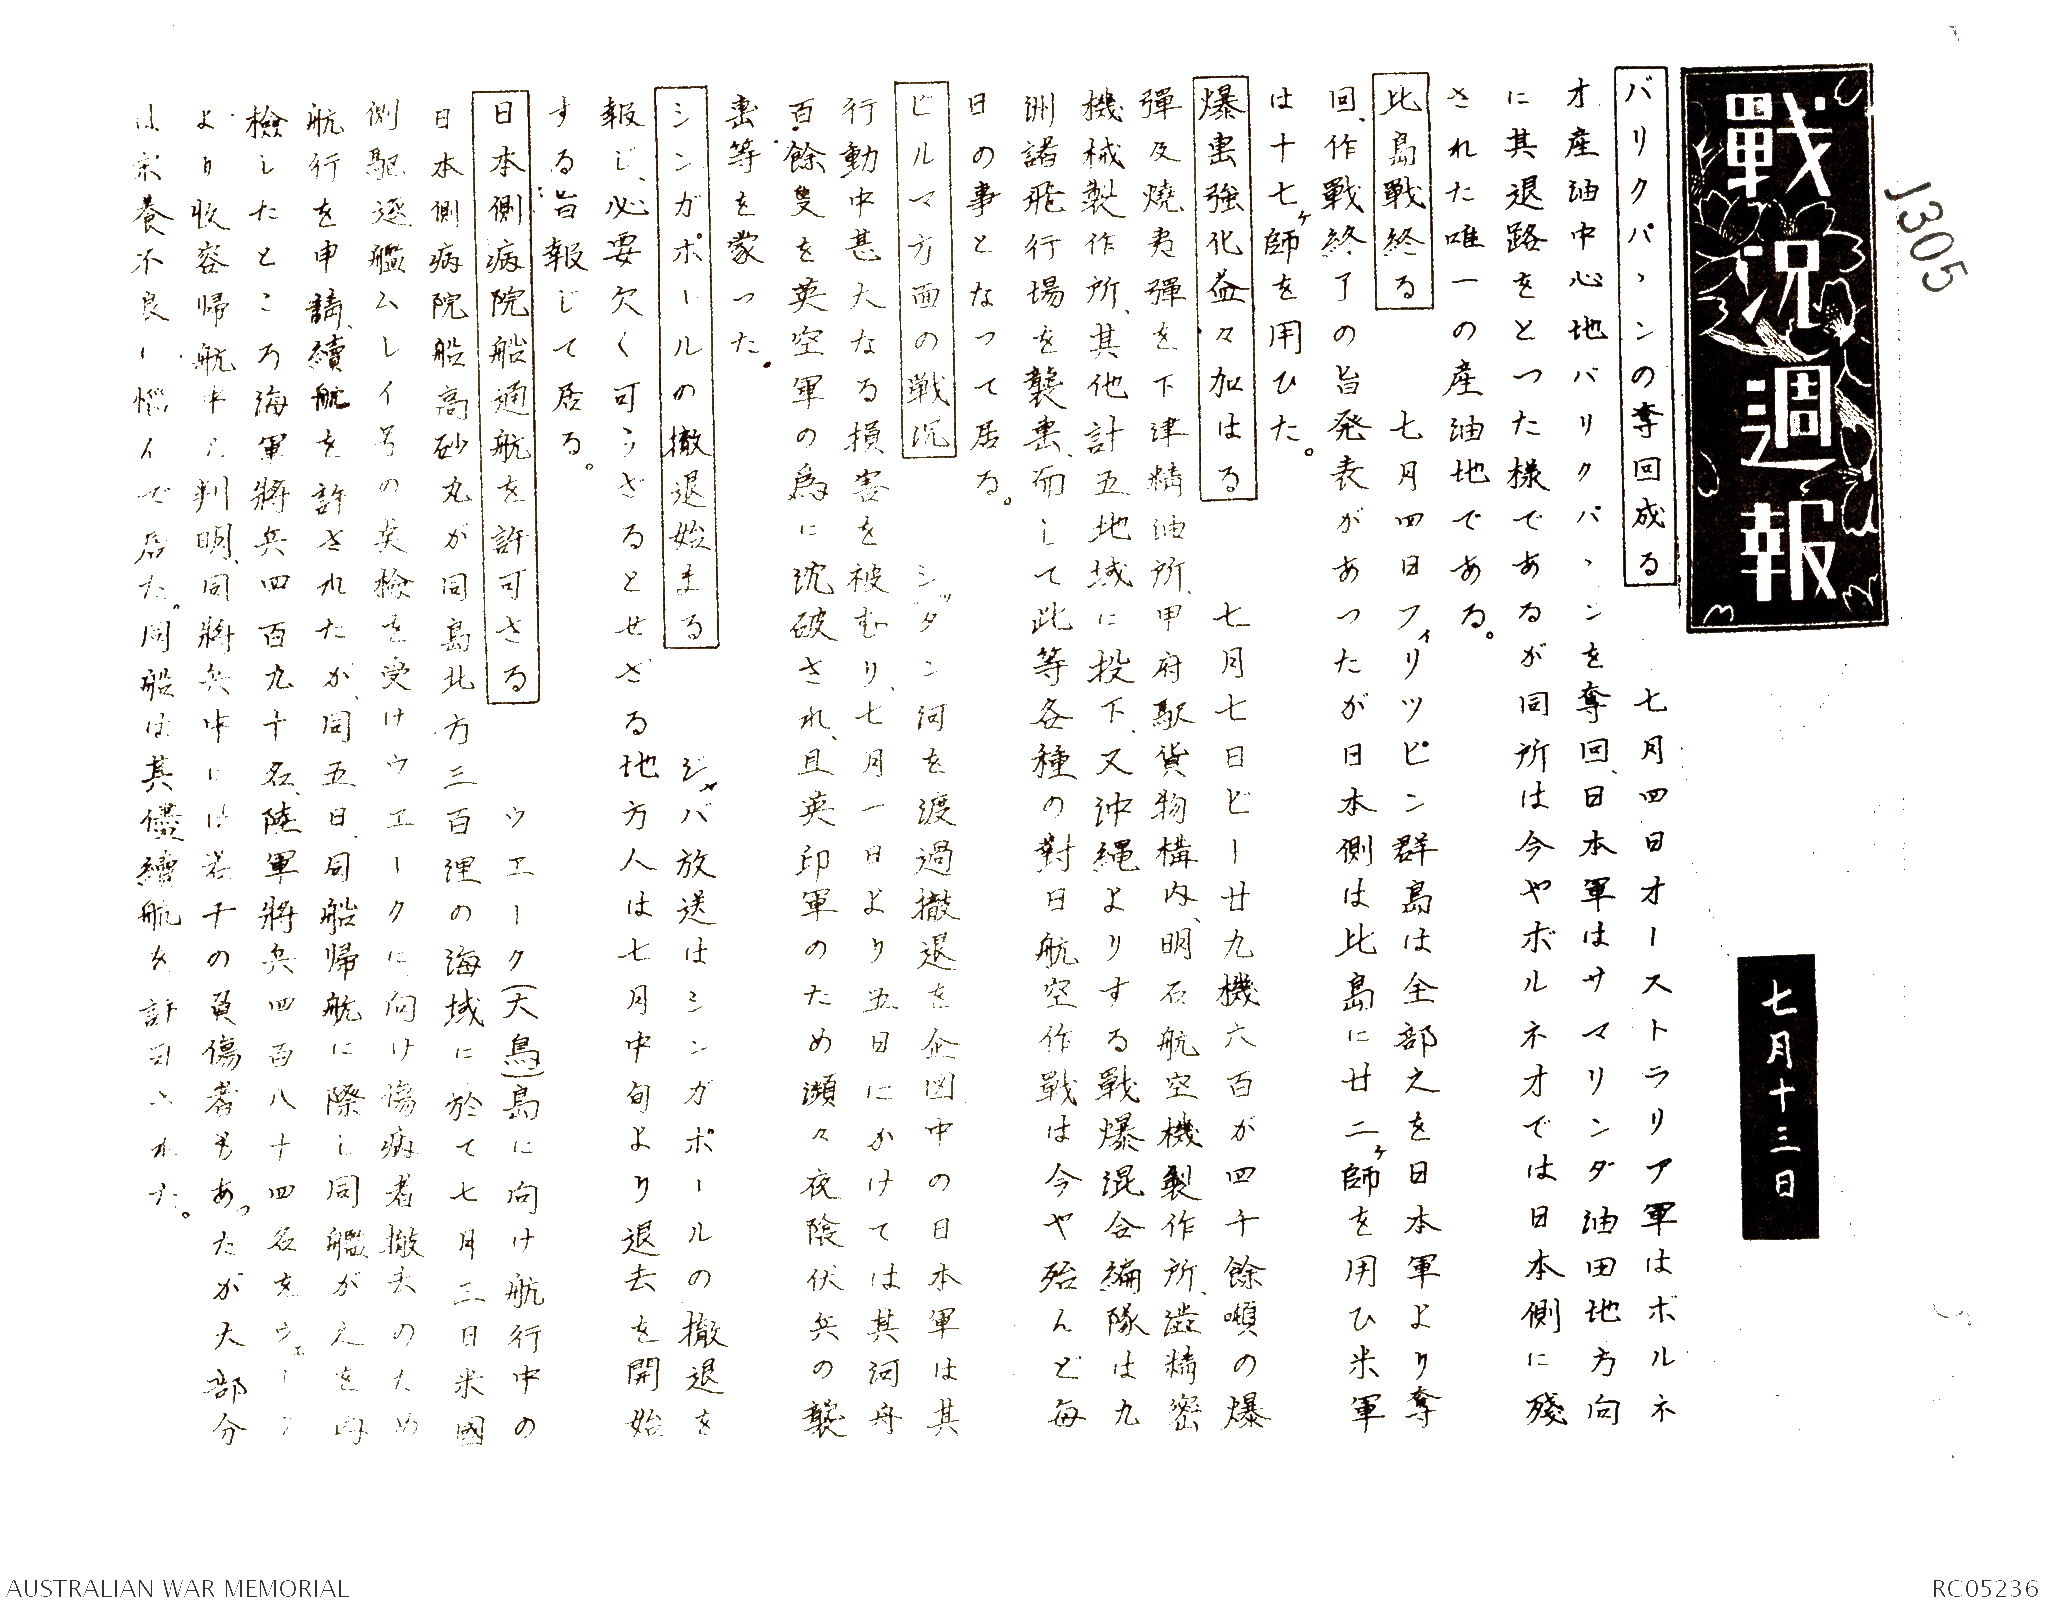 J305
戰況週報
七月十三日
バリクパヽンの奪回成る　七月四日オーストラリア軍はボルネ
オ産油中心地バリクパヽンを奪回、日本軍はサマリンダ油田地方向
に其退路をとつた様であるが同所は今やボルネオでは日本側に殘
された唯一の産油地である。
比島戰終る　七月四日フィリツピン群島は全部之を日本軍より奪
回、作戰終了の旨発表があつたが日本側は比島に廿二ヶ師を用ひ米軍
は十七ヶ師を用ひた。
爆撃強化益々加はる　七月七日ビー廿九機六百が四千餘噸の爆
彈及燒夷彈を下津精油所、甲府駅貨物構内、明石航空機製作所、澁精密
機械製作所、其他計五地域に投下、又沖縄よりする戰爆混合編隊は九
洲諸飛行場を襲撃、而して此等各種の對日航空作戰は今や殆んど毎
日の事となつて居る。
ビルマ方面の戰況　シッタン河を渡過撤退を企図中の日本軍は其
行動中甚大なる損害を被むり、七月一日より五日にかけては其河舟
百餘隻を英空軍の為に沈破され、且英印軍のため瀕々夜陰伏兵の襲
撃等を蒙つた。
シンガポールの撤退始まる　ジャバ放送はシンガポールの撤退を
報じ、必要欠く可らざるとせざる地方人は七月中旬より退去を開始
する旨報じて居る。
日本側病院船通航を許可さる　ウエーク(大鳥)島に向け航行中の
日本側病院船高砂丸が同島北方三百浬の海域に於て七月三日米國
側駆逐艦ムレイ号の臭検を受けウエークに向け傷病者撤去のため
航行を申請、續航を許されたが、同五日、同船帰航に際し同艦が之を内
檢したところ海軍將兵四百九十名、陸軍將兵四百八十四名をウェーク
より收容帰航中と判明、同將兵中には若干の負傷者もあつたが大部分
は栄養不良に惱んで居た。同船は其儘續航を許可された。
AUSTRALIAN WAR MEMORIAL
RC05236